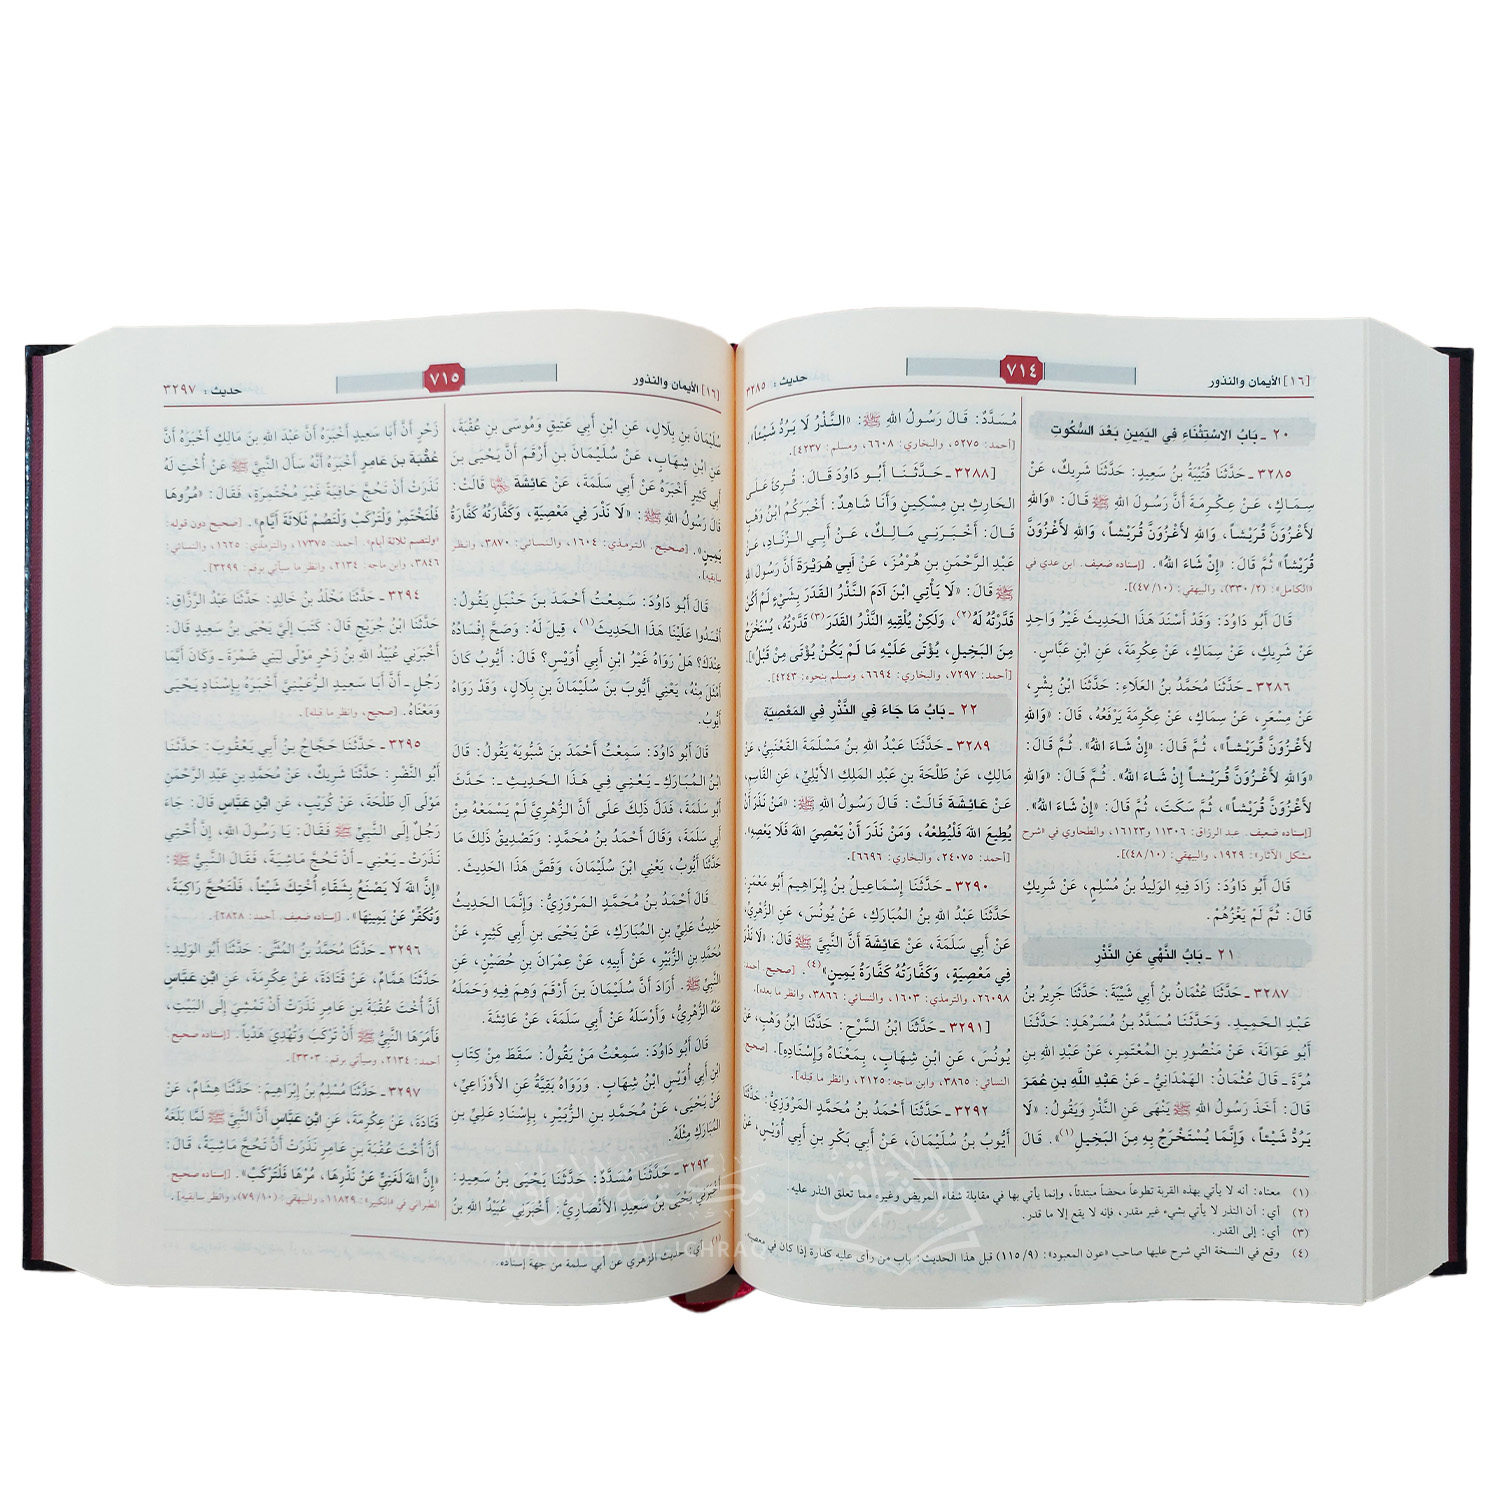 [١٦] الأيمان والنذور
٧١٤
حديث : ٣٢٨٥
٢٠ ـ بَابُ الاسْتِثْنَاءِ فِي اليَمِينِ بَعْدَ السُّكُوتِ
٣٢٨٥ ـ حَدَّثَنَا قُتَيْبَةُ بْنُ سَعِيدٍ: حَدَّثَنَا شَرِيكٌ، عَنْ
سِمَاكٍ، عَنْ عِكْرِمَةَ أَنَّ رَسُولَ اللهِ ﷺ قَالَ: «وَاللهِ
لَأَغْزُوَنَّ قُرَيْشاً، وَاللهِ لَأَغْزُوَنَّ قُرَيْشاً، وَاللهِ لَأَغْزُوَنَّ
قُرَيْشاً» ثُمَّ قَالَ: «إِنْ شَاءَ اللهُ». [إسناده ضعيف. ابن عدي في
«الكامل»: (٢/ ٣٣٠)، والبيهقي: (١٠/ ٤٧)].
قَالَ أَبُو دَاوُدَ: وَقَدْ أَسْنَدَ هَذَا الحَدِيثَ غَيْرُ وَاحِدٍ
عَنْ شَرِيكٍ، عَنْ سِمَاكٍ، عَنْ عِكْرِمَةَ، عَنِ ابْنِ عَبَّاسٍ.
٣٢٨٦ ـ حَدَّثَنَا مُحَمَّدُ بْنُ العَلَاءِ: حَدَّثَنَا ابْنُ بِشْرٍ،
عَنْ مِسْعَرٍ، عَنْ سِمَاكٍ، عَنْ عِكْرِمَةَ يَرْفَعُهُ، قَالَ: «وَاللهِ
لَأَغْزُوَنَّ قُرَيْشاً»، ثُمَّ قَالَ: «إِنْ شَاءَ اللهُ». ثُمَّ قَالَ:
«وَاللهِ لَأَغْزُوَنَّ قُرَيْشاً إِنْ شَاءَ اللهُ». ثُمَّ قَالَ: «وَاللهِ
لَأَغْزُوَنَّ قُرَيْشاً»، ثُمَّ سَكَتَ، ثُمَّ قَالَ: «إِنْ شَاءَ اللهُ».
[إسناده ضعيف. عبد الرزاق: ١١٣٠٦ و١٦١٢٣، والطحاوي في «شرح
مشكل الآثار»: ١٩٢٩، والبيهقي: (١٠/ ٤٨)].
قَالَ أَبُو دَاوُدَ: زَادَ فِيهِ الوَلِيدُ بْنُ مُسْلِمٍ، عَنْ شَرِيكٍ
قَالَ: ثُمَّ لَمْ يَغْزُهُمْ.
٢١ ـ بَابُ النَّهْيِ عَنِ النَّذْرِ
٣٢٨٧ ـ حَدَّثَنَا عُثْمَانُ بْنُ أَبِي شَيْبَةَ: حَدَّثَنَا جَرِيرُ بْنُ
عَبْدِ الحَمِيدِ. وَحَدَّثَنَا مُسَدَّدُ بْنُ مُسَرْهَدٍ: حَدَّثَنَا
أَبُو عَوَانَةَ، عَنْ مَنْصُورِ بْنِ المُعْتَمِرِ، عَنْ عَبْدِ اللهِ بْنِ
مُرَّةَ ـ قَالَ عُثْمَانُ: الهَمْدَانِيُّ ـ عَنْ عَبْدِ اللَّهِ بْنِ عُمَرَ
قَالَ: أَخَذَ رَسُولُ اللهِ ﷺ يَنْهَى عَنِ النَّذْرِ وَيَقُولُ: «لَا
يَرُدُّ شَيْئاً، وَإِنَّمَا يُسْتَخْرَجُ بِهِ مِنَ البَخِيلِ(١)». قَالَ
مُسَدَّدٌ: قَالَ رَسُولُ اللهِ ﷺ: «النَّذْرُ لَا يَرُدُّ شَيْئاً».
[أحمد: ٥٢٧٥، والبخاري: ٦٦٠٨، ومسلم: ٤٢٣٧].
[٣٢٨٨ ـ حَدَّثَنَا أَبُو دَاوُدَ قَالَ: قُرِئَ عَلَى
الحَارِثِ بْنِ مِسْكِينٍ وَأَنَا شَاهِدٌ: أَخْبَرَكُمُ ابْنُ وَهْبٍ
قَالَ: أَخْبَرَنِي مَالِكٌ، عَنْ أَبِي الزِّنَادِ، عَنْ
عَبْدِ الرَّحْمَنِ بْنِ هُرْمُزَ، عَنْ أَبِي هُرَيْرَةَ أَنَّ رَسُولَ اللهِ
ﷺ قَالَ: «لَا يَأْتِي ابْنَ آدَمَ النَّذْرُ القَدَرَ بِشَيْءٍ لَمْ أَكُنْ
قَدَّرْتُهُ لَهُ(٢)، وَلَكِنْ يُلْقِيهِ النَّذْرُ القَدَرَ(٣) قَدَّرْتُهُ، يُسْتَخْرَجُ
مِنَ البَخِيلِ، يُؤْتَى عَلَيْهِ مَا لَمْ يَكُنْ يُؤْتَى مِنْ قَبْلُ»].
[أحمد: ٧٢٩٧، والبخاري: ٦٦٩٤، ومسلم بنحوه: ٤٢٤٣].
٢٢ ـ بَابُ مَا جَاءَ فِي النَّذْرِ فِي المَعْصِيَةِ
٣٢٨٩ ـ حَدَّثَنَا عَبْدُ اللهِ بْنُ مَسْلَمَةَ القَعْنَبِيُّ، عَنْ
مَالِكٍ، عَنْ طَلْحَةَ بْنِ عَبْدِ المَلِكِ الأَيْلِيِّ، عَنِ القَاسِمِ،
عَنْ عَائِشَةَ قَالَتْ: قَالَ رَسُولُ اللهِ ﷺ: «مَنْ نَذَرَ أَنْ
يُطِيعَ اللهَ فَلْيُطِعْهُ، وَمَنْ نَذَرَ أَنْ يَعْصِيَ اللهَ فَلَا يَعْصِهِ».
[أحمد: ٢٤٠٧٥، والبخاري: ٦٦٩٦].
٣٢٩٠ ـ حَدَّثَنَا إِسْمَاعِيلُ بْنُ إِبْرَاهِيمَ أَبُو مَعْمَرٍ:
حَدَّثَنَا عَبْدُ اللهِ بْنُ المُبَارَكِ، عَنْ يُونُسَ، عَنِ الزُّهْرِيِّ،
عَنْ أَبِي سَلَمَةَ، عَنْ عَائِشَةَ أَنَّ النَّبِيَّ ﷺ قَالَ: «لَا نَذْرَ
فِي مَعْصِيَةٍ، وَكَفَّارَتُهُ كَفَّارَةُ يَمِينٍ»(٤). [صحيح. أحمد:
٢٦٠٩٨، والترمذي: ١٦٠٣، والنسائي: ٣٨٦٦، وانظر ما بعده].
[٣٢٩١ ـ حَدَّثَنَا ابْنُ السَّرْحِ: حَدَّثَنَا ابْنُ وَهْبٍ، عَنْ
يُونُسَ، عَنِ ابْنِ شِهَابٍ، بِمَعْنَاهُ وَإِسْنَادِهِ]. [صحيح.
النسائي: ٣٨٦٥، وابن ماجه: ٢١٢٥، وانظر ما قبله].
٣٢٩٢ ـ حَدَّثَنَا أَحْمَدُ بْنُ مُحَمَّدٍ المَرْوَزِيُّ: حَدَّثَنَا
أَيُّوبُ بْنُ سُلَيْمَانَ، عَنْ أَبِي بَكْرِ بْنِ أَبِي أُوَيْسٍ، عَنْ
(١) معناه: أنه لا يأتي بهذه القربة تطوعاً محضاً مبتدئاً، وإنما يأتي بها في مقابلة شفاء المريض وغيره مما تعلق النذر عليه.
(٢) أي: أن النذر لا يأتي بشيء غير مقدر، فإنه لا يقع إلا ما قدر.
(٣) أي: إلى القدر.
(٤) وقع في النسخة التي شرح عليها صاحب «عون المعبود»: (٩/ ١١٥) قبل هذا الحديث: باب من رأى عليه كفارة إذا كان في معصية.
[١٦] الأيمان والنذور
٧١٥
حديث : ٣٢٩٧
سُلَيْمَانَ بْنِ بِلَالٍ، عَنِ ابْنِ أَبِي عَتِيقٍ وَمُوسَى بْنِ عُقْبَةَ،
عَنِ ابْنِ شِهَابٍ، عَنْ سُلَيْمَانَ بْنِ أَرْقَمَ أَنَّ يَحْيَى بْنَ
أَبِي كَثِيرٍ أَخْبَرَهُ عَنْ أَبِي سَلَمَةَ، عَنْ عَائِشَةَ ﵂ قَالَتْ:
قَالَ رَسُولُ اللهِ ﷺ: «لَا نَذْرَ فِي مَعْصِيَةٍ، وَكَفَّارَتُهُ كَفَّارَةُ
يَمِينٍ». [صحيح. الترمذي: ١٦٠٤، والنسائي: ٣٨٧٠، وانظر
سابقيه].
قَالَ أَبُو دَاوُدَ: سَمِعْتُ أَحْمَدَ بْنَ حَنْبَلٍ يَقُولُ:
أَفْسَدُوا عَلَيْنَا هَذَا الحَدِيثَ(١)، قِيلَ لَهُ: وَصَحَّ إِفْسَادُهُ
عِنْدَكَ؟ هَلْ رَوَاهُ غَيْرُ ابْنِ أَبِي أُوَيْسٍ؟ قَالَ: أَيُّوبُ كَانَ
أَمْثَلَ مِنْهُ، يَعْنِي أَيُّوبَ بْنَ سُلَيْمَانَ بْنِ بِلَالٍ، وَقَدْ رَوَاهُ
أَيُّوبُ.
قَالَ أَبُو دَاوُدَ: سَمِعْتُ أَحْمَدَ بْنَ شَبُّويَهْ يَقُولُ: قَالَ
ابْنُ المُبَارَكِ ـ يَعْنِي فِي هَذَا الحَدِيثِ ـ: حَدَّثَ
أَبُو سَلَمَةَ، فَدَلَّ ذَلِكَ عَلَى أَنَّ الزُّهْرِيَّ لَمْ يَسْمَعْهُ مِنْ
أَبِي سَلَمَةَ، وَقَالَ أَحْمَدُ بْنُ مُحَمَّدٍ: وَتَصْدِيقُ ذَلِكَ مَا
حَدَّثَنَا أَيُّوبُ، يَعْنِي ابْنَ سُلَيْمَانَ، وَقَصَّ هَذَا الحَدِيثَ.
قَالَ أَحْمَدُ بْنُ مُحَمَّدٍ المَرْوَزِيُّ: وَإِنَّمَا الحَدِيثُ
حَدِيثُ عَلِيِّ بْنِ المُبَارَكِ، عَنْ يَحْيَى بْنِ أَبِي كَثِيرٍ، عَنْ
مُحَمَّدِ بْنِ الزُّبَيْرِ، عَنْ أَبِيهِ، عَنْ عِمْرَانَ بْنِ حُصَيْنٍ، عَنِ
النَّبِيِّ ﷺ. أَرَادَ أَنَّ سُلَيْمَانَ بْنَ أَرْقَمَ وَهِمَ فِيهِ وَحَمَلَهُ
عَنْهُ الزُّهْرِيُّ، وَأَرْسَلَهُ عَنْ أَبِي سَلَمَةَ، عَنْ عَائِشَةَ.
قَالَ أَبُو دَاوُدَ: سَمِعْتُ مَنْ يَقُولُ: سَقَطَ مِنْ كِتَابِ
ابْنِ أَبِي أُوَيْسٍ ابْنُ شِهَابٍ. وَرَوَاهُ بَقِيَّةُ عَنِ الأَوْزَاعِيِّ،
عَنْ يَحْيَى، عَنْ مُحَمَّدِ بْنِ الزُّبَيْرِ، بِإِسْنَادِ عَلِيِّ بْنِ
المُبَارَكِ مِثْلَهُ.
٣٢٩٣ ـ حَدَّثَنَا مُسَدَّدٌ: حَدَّثَنَا يَحْيَى بْنُ سَعِيدٍ:
أَخْبَرَنِي يَحْيَى بْنُ سَعِيدٍ الأَنْصَارِيُّ: أَخْبَرَنِي عُبَيْدُ اللهِ بْنُ
زَحْرٍ أَنَّ أَبَا سَعِيدٍ أَخْبَرَهُ أَنَّ عَبْدَ اللهِ بْنَ مَالِكٍ أَخْبَرَهُ أَنَّ
عُقْبَةَ بْنَ عَامِرٍ أَخْبَرَهُ أَنَّهُ سَأَلَ النَّبِيَّ ﷺ عَنْ أُخْتٍ لَهُ
نَذَرَتْ أَنْ تَحُجَّ حَافِيَةً غَيْرَ مُخْتَمِرَةٍ، فَقَالَ: «مُرُوهَا
فَلْتَخْتَمِرْ وَلْتَرْكَبْ وَلْتَصُمْ ثَلَاثَةَ أَيَّامٍ». [صحيح دون قوله:
«ولتصم ثلاثة أيام». أحمد: ١٧٣٧٥، والترمذي: ١٦٢٥، والنسائي:
٣٨٤٦، وابن ماجه: ٢١٣٤، وانظر ما سيأتي برقم: ٣٢٩٩].
٣٢٩٤ ـ حَدَّثَنَا مَخْلَدُ بْنُ خَالِدٍ: حَدَّثَنَا عَبْدُ الرَّزَّاقِ:
حَدَّثَنَا ابْنُ جُرَيْجٍ قَالَ: كَتَبَ إِلَيَّ يَحْيَى بْنُ سَعِيدٍ قَالَ:
أَخْبَرَنِي عُبَيْدُ اللهِ بْنُ زَحْرٍ مَوْلًى لِبَنِي ضَمْرَةَ ـ وَكَانَ أَيَّمَا
رَجُلٍ ـ أَنَّ أَبَا سَعِيدٍ الرُّعَيْنِيَّ أَخْبَرَهُ بِإِسْنَادِ يَحْيَى
وَمَعْنَاهُ. [صحيح، وانظر ما قبله].
٣٢٩٥ ـ حَدَّثَنَا حَجَّاجُ بْنُ أَبِي يَعْقُوبَ: حَدَّثَنَا
أَبُو النَّضْرِ: حَدَّثَنَا شَرِيكٌ، عَنْ مُحَمَّدِ بْنِ عَبْدِ الرَّحْمَنِ
مَوْلَى آلِ طَلْحَةَ، عَنْ كُرَيْبٍ، عَنِ ابْنِ عَبَّاسٍ قَالَ: جَاءَ
رَجُلٌ إِلَى النَّبِيِّ ﷺ فَقَالَ: يَا رَسُولَ اللهِ، إِنَّ أُخْتِي
نَذَرَتْ ـ يَعْنِي ـ أَنْ تَحُجَّ مَاشِيَةً، فَقَالَ النَّبِيُّ ﷺ:
«إِنَّ اللهَ لَا يَصْنَعُ بِشَقَاءِ أُخْتِكَ شَيْئاً، فَلْتَحُجَّ رَاكِبَةً،
وَتُكَفِّرْ عَنْ يَمِينِهَا». [إسناده ضعيف. أحمد: ٢٨٢٨].
٣٢٩٦ ـ حَدَّثَنَا مُحَمَّدُ بْنُ المُثَنَّى: حَدَّثَنَا أَبُو الوَلِيدِ:
حَدَّثَنَا هَمَّامٌ، عَنْ قَتَادَةَ، عَنْ عِكْرِمَةَ، عَنِ ابْنِ عَبَّاسٍ
أَنَّ أُخْتَ عُقْبَةَ بْنِ عَامِرٍ نَذَرَتْ أَنْ تَمْشِيَ إِلَى البَيْتِ،
فَأَمَرَهَا النَّبِيُّ ﷺ أَنْ تَرْكَبَ وَتُهْدِيَ هَدْياً. [إسناده صحيح.
أحمد: ٢١٣٤، وسيأتي برقم: ٣٣٠٣].
٣٢٩٧ ـ حَدَّثَنَا مُسْلِمُ بْنُ إِبْرَاهِيمَ: حَدَّثَنَا هِشَامٌ، عَنْ
قَتَادَةَ، عَنْ عِكْرِمَةَ، عَنِ ابْنِ عَبَّاسٍ أَنَّ النَّبِيَّ ﷺ لَمَّا بَلَغَهُ
أَنَّ أُخْتَ عُقْبَةَ بْنِ عَامِرٍ نَذَرَتْ أَنْ تَحُجَّ مَاشِيَةً، قَالَ:
«إِنَّ اللهَ لَغَنِيٌّ عَنْ نَذْرِهَا، مُرْهَا فَلْتَرْكَبْ». [إسناده صحيح.
الطبراني في «الكبير»: ١١٨٢٩، والبيهقي: (١٠/ ٧٩)، وانظر سابقيه].
(١) أي: حديث الزهري عن أبي سلمة من جهة إسناده.
MAKTABA AL ICHRAQ